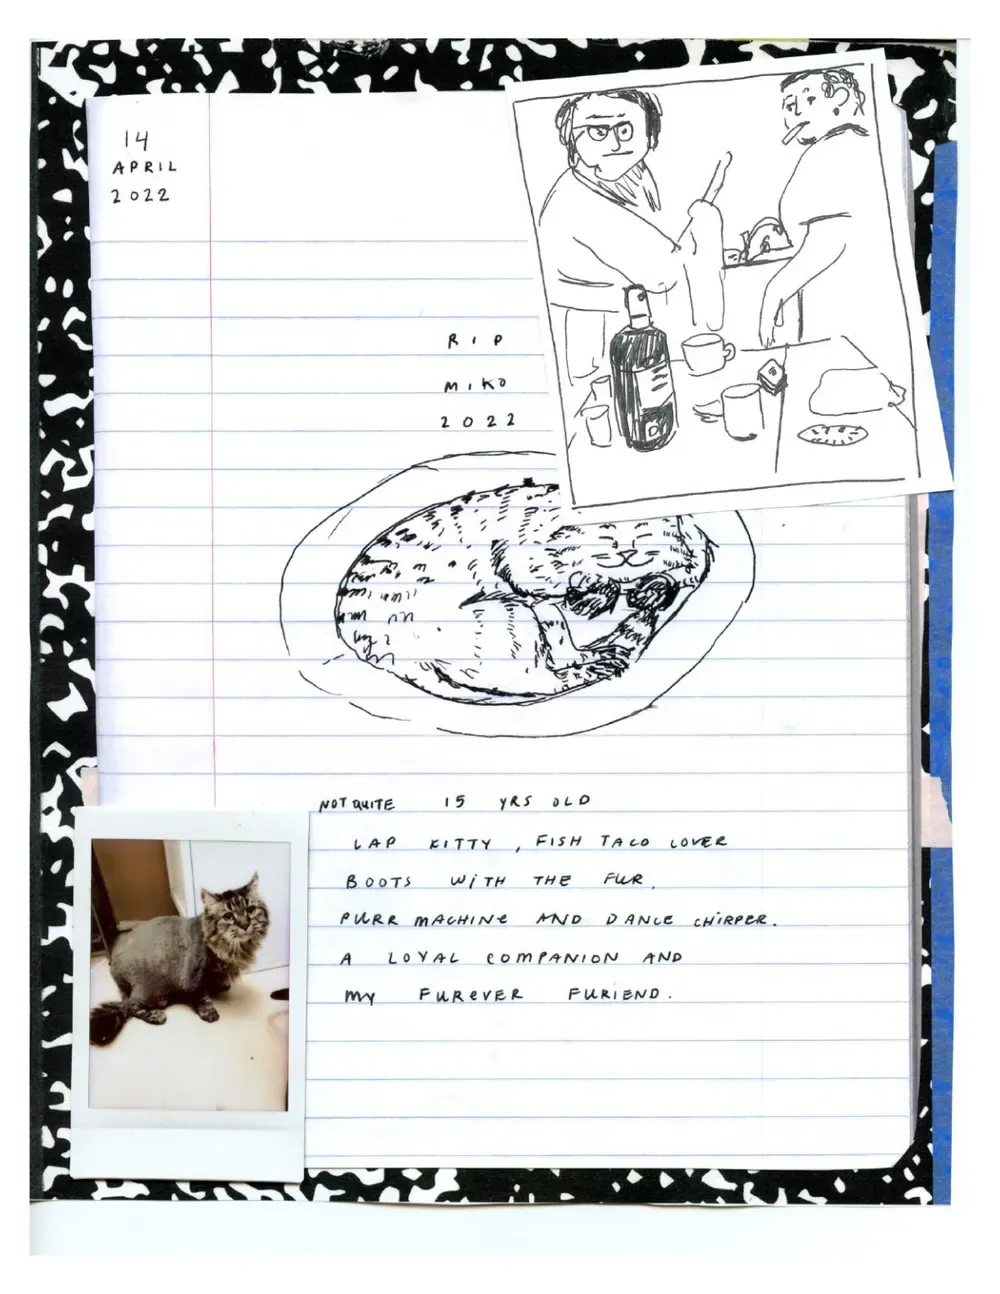 14
APRIL
2022
RIP
MIKO
2022
NOT QUITE 15 YRS OLD
LAP KITTY, FISH TACO LOVER
BOOTS WITH THE FUR,
PURR MACHINE AND DANCE CHIRPER.
A LOYAL COMPANION AND
MY FUREVER FURIEND.